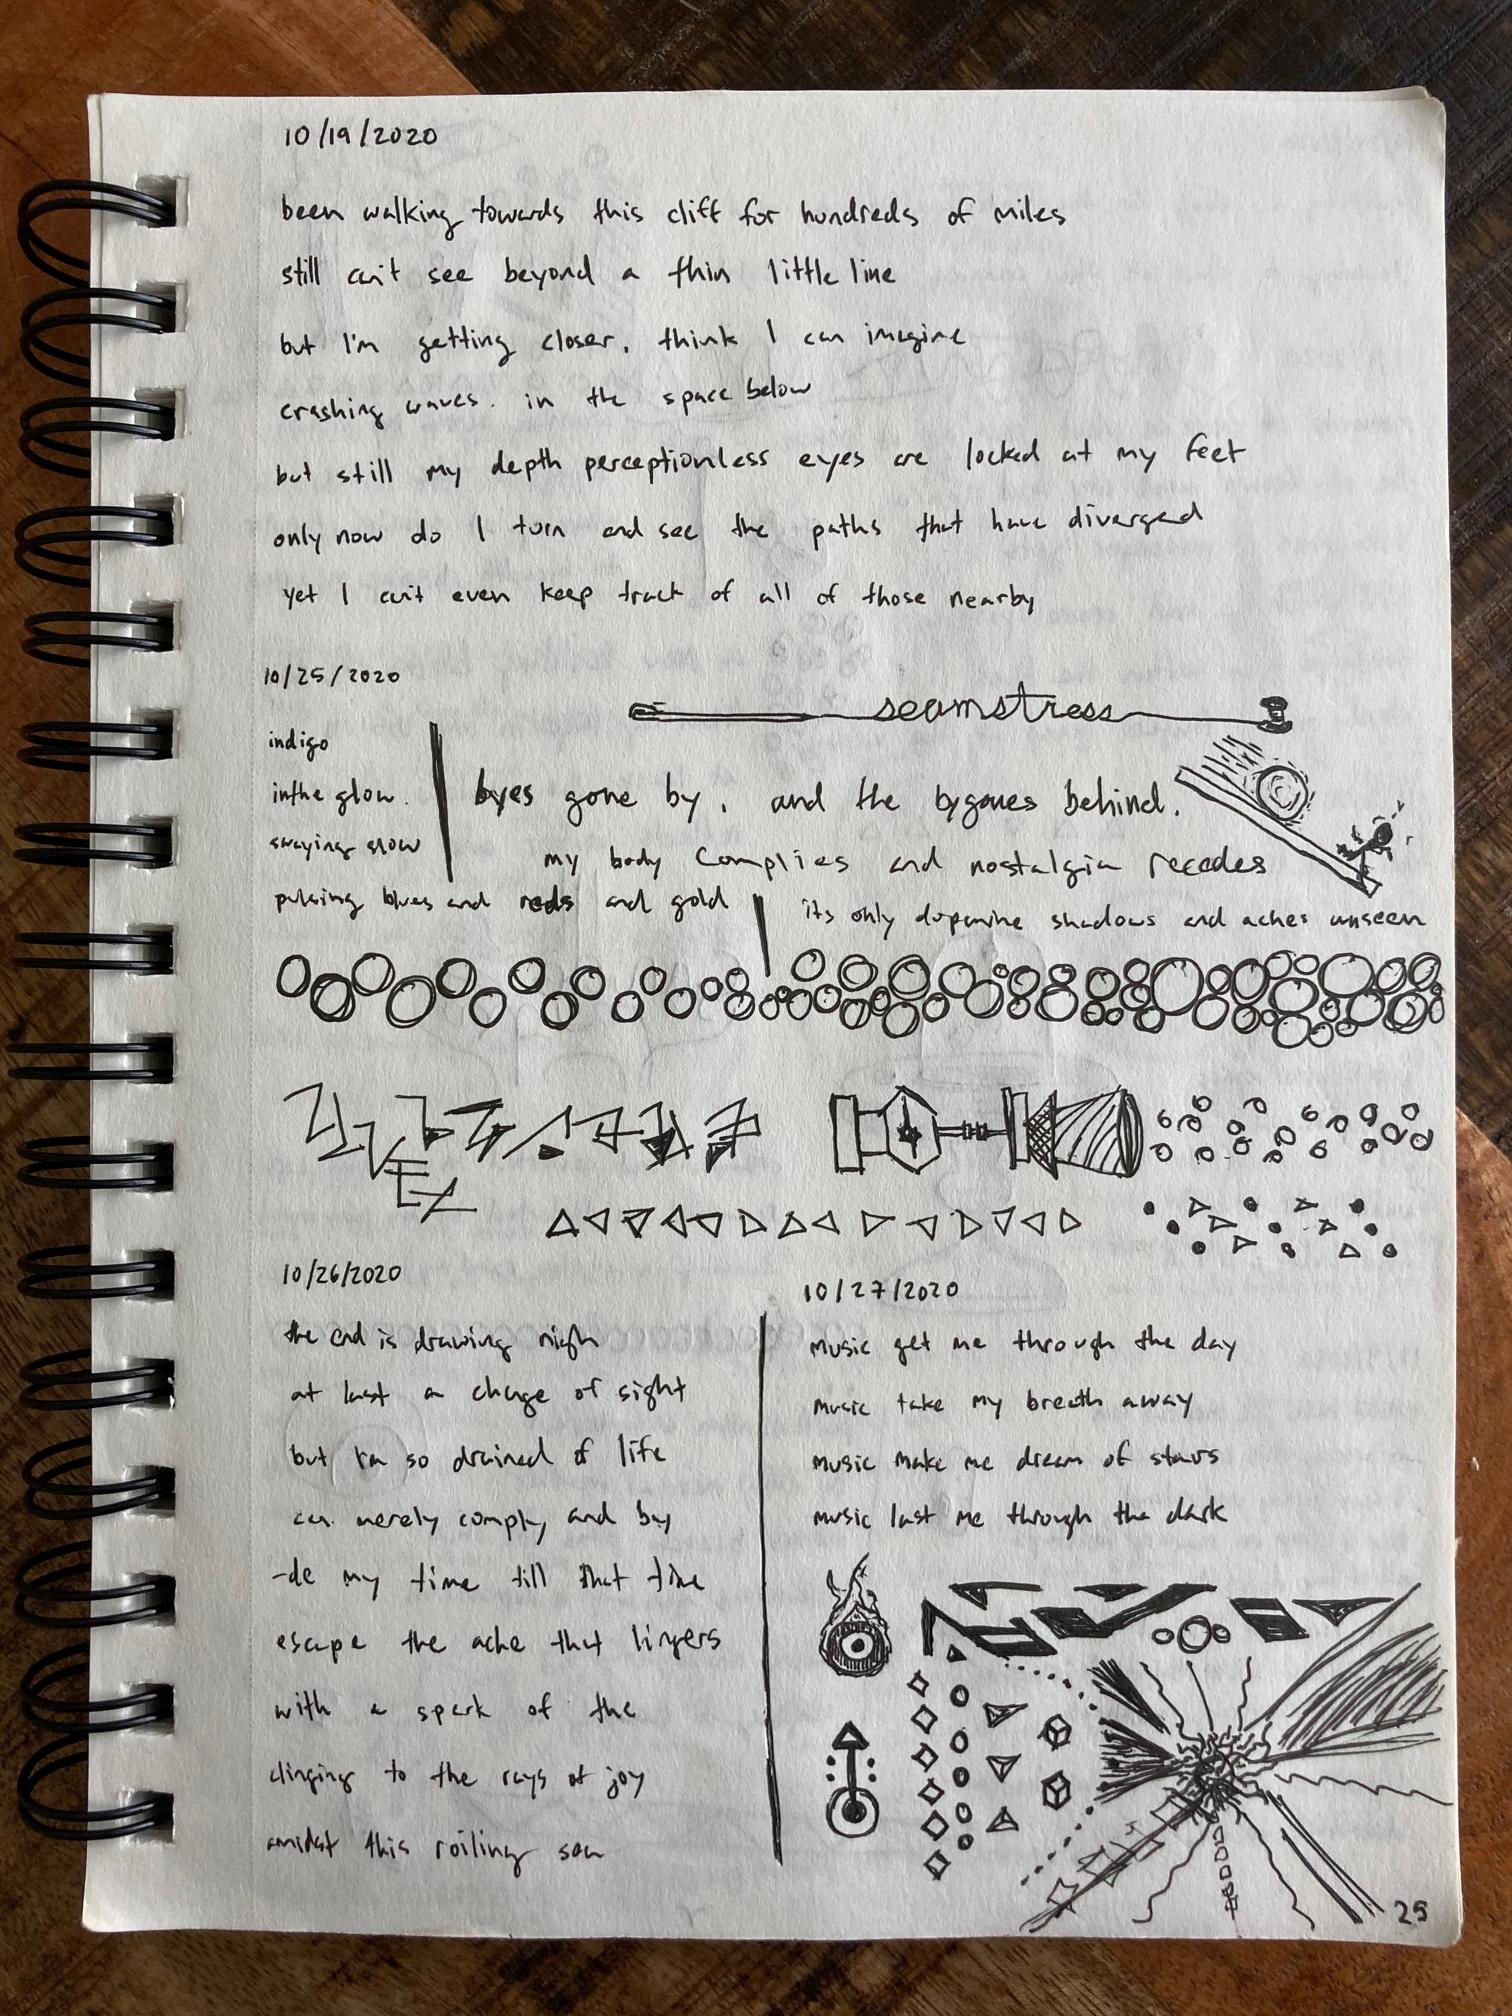 10/19/2020
been walking towards this cliff for hundreds of miles
still can't see beyond a thin little line
but I'm getting closer, think I can imagine
crashing waves. in the space below
but still my depth perceptionless eyes are locked at my feet
only now do I turn and see the paths that have diverged
yet I can't even keep track of all of those nearby
10/25/2020
seamstress
indigo
in the glow.
swaying slow
pulsing blues and reds and gold
byes gone by, and the bygones behind.
my body complies and nostalgia recedes
its only dopamine shadows and aches unseen
10/26/2020
the end is drawing nigh
at last a change of sight
but I'm so drained of life
can merely comply and by
-de my time till that time
escape the ache that lingers
with a spark of the
clinging to the rays of joy
amidst this roiling sea
10/27/2020
music get me through the day
music take my breath away
music make me dream of stars
music last me through the dark
25